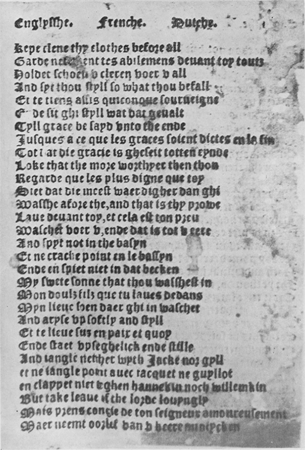 Englysshe. Frenche. Dutche.
Kepe clene thy clothes before all
Garde nettement tes abilemens devant toy touts
Holdet schoen v cleren voet v all
And syt thou styll so what thou befall
Et te tiens assis quiconque sourueigne
Ende sit ghi styll wat dat geualt
Tyll grace be sayd vnto the ende
Jusques a ce que les graces soient dictes en la fin
Tot dat die gracie is gheseit totten eynde
Loke that the more worthyer then thou
Regarde que les plus digne que toy
Siet dat die meest waerdigher dan ghi
Wasshe afore the, and that is thy prowe
Laue deuant toy, et cela est ton preu
Wasschet voer v, ende dat is tot v
And spyt not in the basyn
Et ne crache point en le bassyn
Ende en spiet niet in dat becken
My swete sonne that thou wasshest in
Mon doulz filz que tu laues dedans
Myn lieue soen daer ghi in wasschet
And aryse vp softly and styll
Et te lieue sus en paix et quoy
Ende staet vpseghelick ende stille
And iangle nether wyth Jacke nor gyll
et ne iangle point auec iacquet ne guyllot
en clappet niet teghen hannekin noch willemkin
But take leaue of the lorde louyngly
Mais prens congie de ton seigneur amoureusement
Maer neemt oorlof van v heere